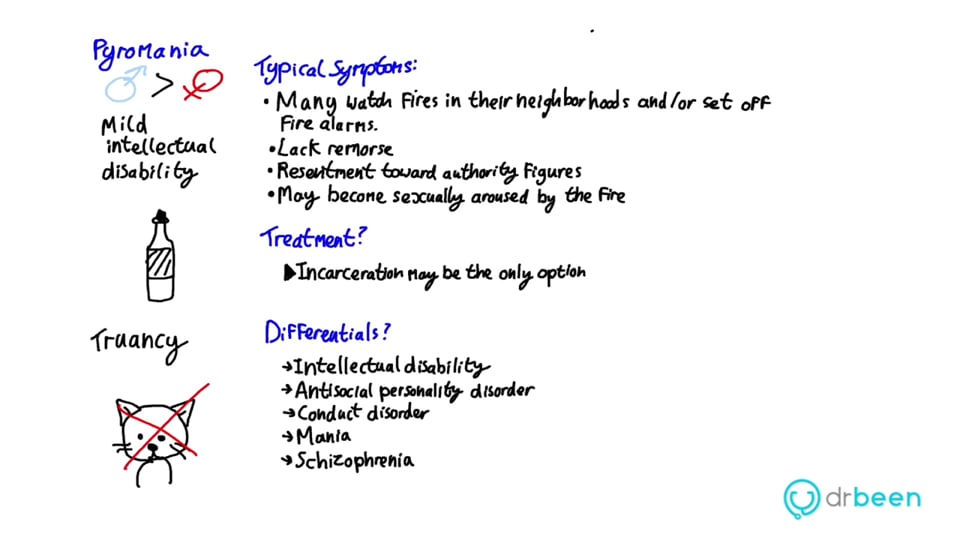 Pyromania
>
Mild
intellectual
disability
Truancy
Typical Symptoms:
• Many watch fires in their neighborhoods and/or set off
fire alarms.
• Lack remorse
• Resentment toward authority figures
• May become sexually aroused by the fire
Treatment?
▶ Incarceration may be the only option
Differentials?
→ Intellectual disability
→ Antisocial personality disorder
→ Conduct disorder
→ Mania
→ Schizophrenia
drbeen